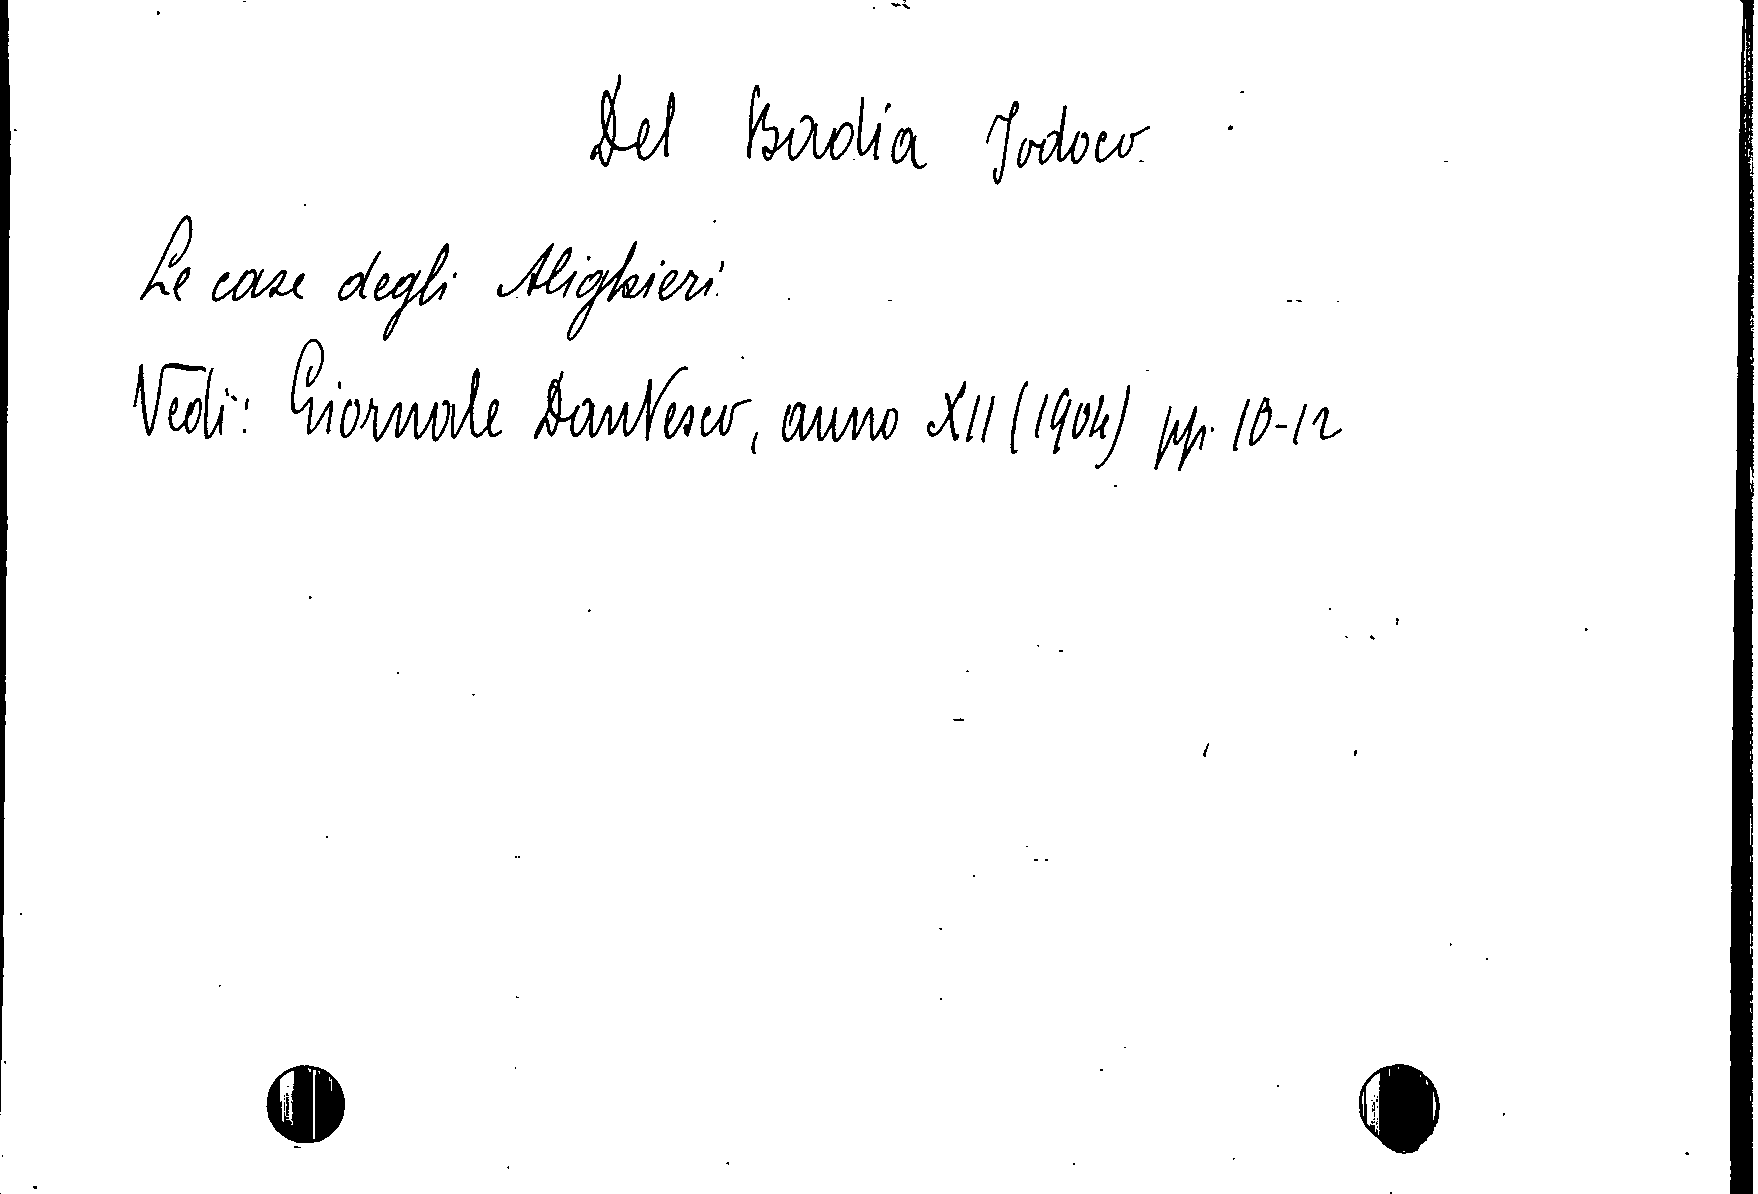 Del Badia Jodoco
Le case degli Alighieri
Vedi: Giornale Dantesco, anno XII (1904) pp. 10-12